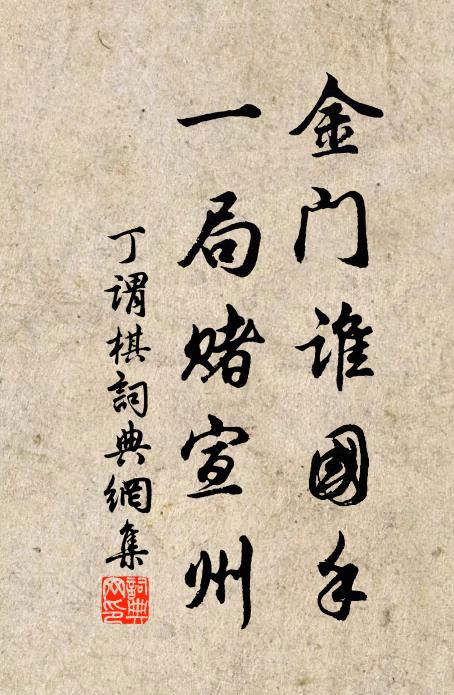 金门谁國手
一局赌宣州
丁谓棋詞典網集
詞典網印